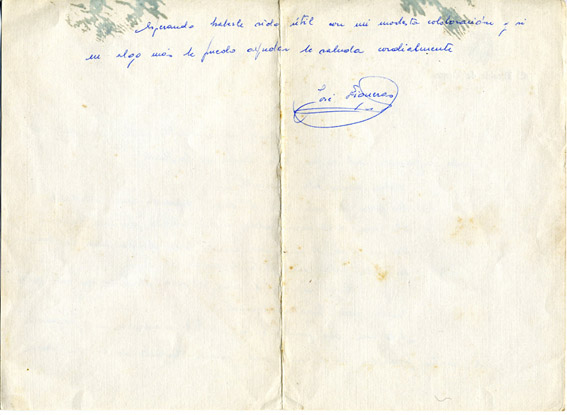 Esperando haberle sido útil con mi modesta colaboración y si
en algo más le puedo ayudar le saluda cordialmente
José Figueras